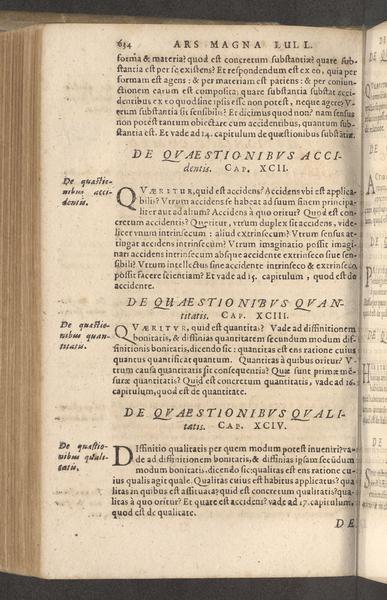 634 ARS MAGNA LULL.
forma & materia? quod est concretum substantiæ? quare sub-
stantia est per se existens? Et respondendum est ex eo, quia per
formam est agens: & per materiam est patiens: & per coniun-
ctionem earum est composita: quare substantia substat acci-
dentibus ex eo quod sine ipsis esse non potest, neque agere? V-
trum substantia sit sensibilis? Et dicimus quod non? nam sensus
non potest tantum obiectare cum accidentibus, quantum sub-
stantia est. Et vade ad 14. capitulum de quæstionibus substātiæ.
DE QVAESTIONIBVS ACCI-
dentis. CAP. XCII.
De quæstio-
nibus acci-
dentis.
QVÆRITVR, quid est accidens? Accidens vbi est applica-
bilis? Vtrum accidens se habeat ad suum finem principa-
liter aut ad alium? Accidens à quo oritur? Quod est con-
cretum accidentis? Quæritur, vtrum duplex sit accidens, vide-
licet vnum intrinsecum: aliud extrinsecum? Vtrum sensus at-
tingat accidens intrinsecum? Vtrum imaginatio possit imagi-
nari accidens intrinsecum absque accidente extrinseco siue sen-
sibili? Vtrum intellectus sine accidente intrinseco & extrinseco
possit facere scientiam? Et vade ad 15. capitulum, quod est de
accidente.
DE QUAESTIONIBVS QVAN-
titatis. CAP. XCIII.
De quæstio-
nibus quan-
titatis.
QVÆRITVR, quid est quantita? Vade ad diffinitionem
bonitatis, & diffinias quantitatem secundum modum dif-
finitionis bonitatis, dicendo sic: quantitas est ens ratione cuius
quantus quantificat quantum. Quantitas à quibus oritur? V-
trum causa quantitatis sit consequentia? Quæ sunt primæ mē-
suræ quantitatis? Quid est concretum quantitatis, vade ad 16.
capitulum, quod est de quantitate.
DE QVAESTIONIBVS QVALI-
tatis. CAP. XCIV.
De quæstio-
nibus quali-
tatis.
Diffinitio qualitatis per quem modum potest inueniri? va-
de ad diffinitionem bonitatis, & diffinias ipsam secūdum
modum bonitatis, dicendo sic: qualitas est ens ratione cu-
ius qualis agit quale. Qualitas cuius est habitus applicatus? qua
litas in quibus est assituata? quid est concretum qualitatis? qua-
litas à quo oritur? Et quare est accidens? vade ad 17. capitulum,
quod est de qualitate.
DE